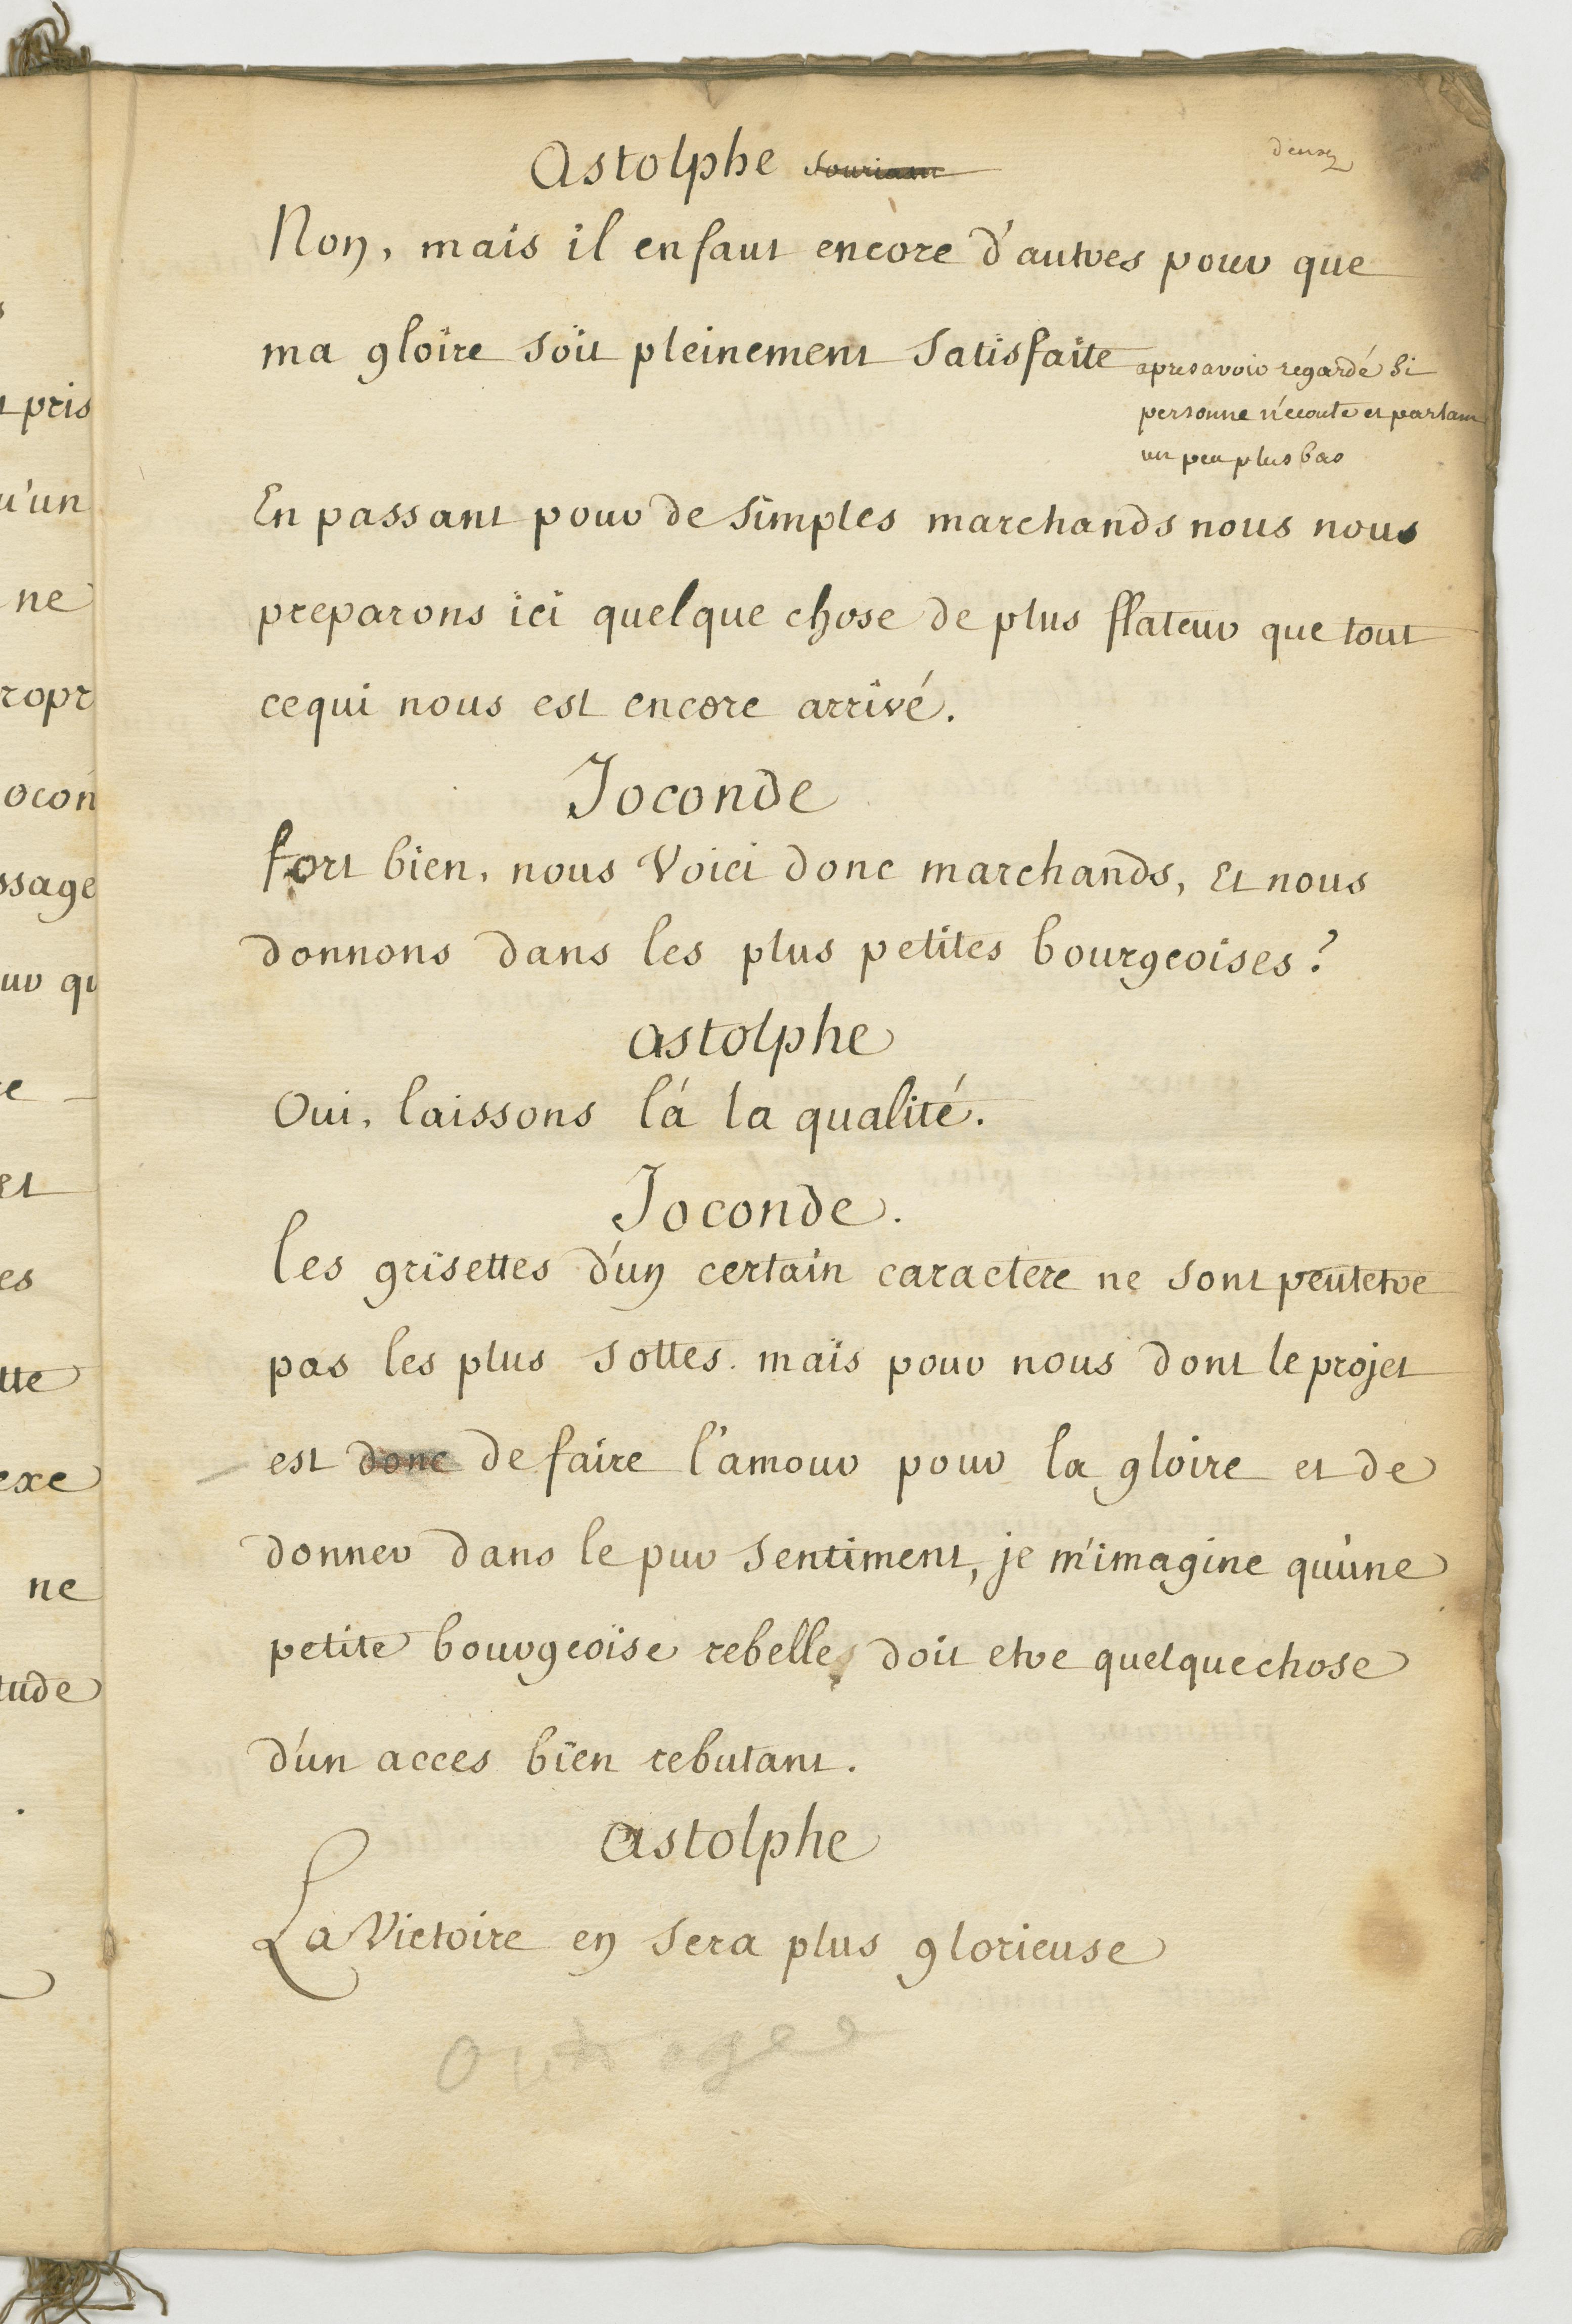 deux
Astolphe souriant
Non, mais il en faut encore d'autres pour que
ma gloire soit pleinement satisfaite
apres avoir regardé si
personne n'ecoute et parlant
un peu plus bas
En passant pour de simples marchands nous nous
preparons ici quelque chose de plus flateur que tout
ce qui nous est encore arrivé.
Joconde
fort bien, nous voici donc marchands, Et nous
donnons dans les plus petites bourgeoises?
astolphe
Oui, laissons là la qualité.
Joconde.
les grisettes d'un certain caractere ne sont peutetre
pas les plus sottes. mais pour nous dont le projet
est donc de faire l'amour pour la gloire et de
donner dans le pur sentiment, je m'imagine qu'une
petite bourgeoise rebelle doit etre quelque chose
d'un acces bien rebutant.
astolphe
La Victoire en sera plus glorieuse
t pris
u'un
ne
ropr
ocon
ssage
ur qu
et
es
tte
exe
ne
tude